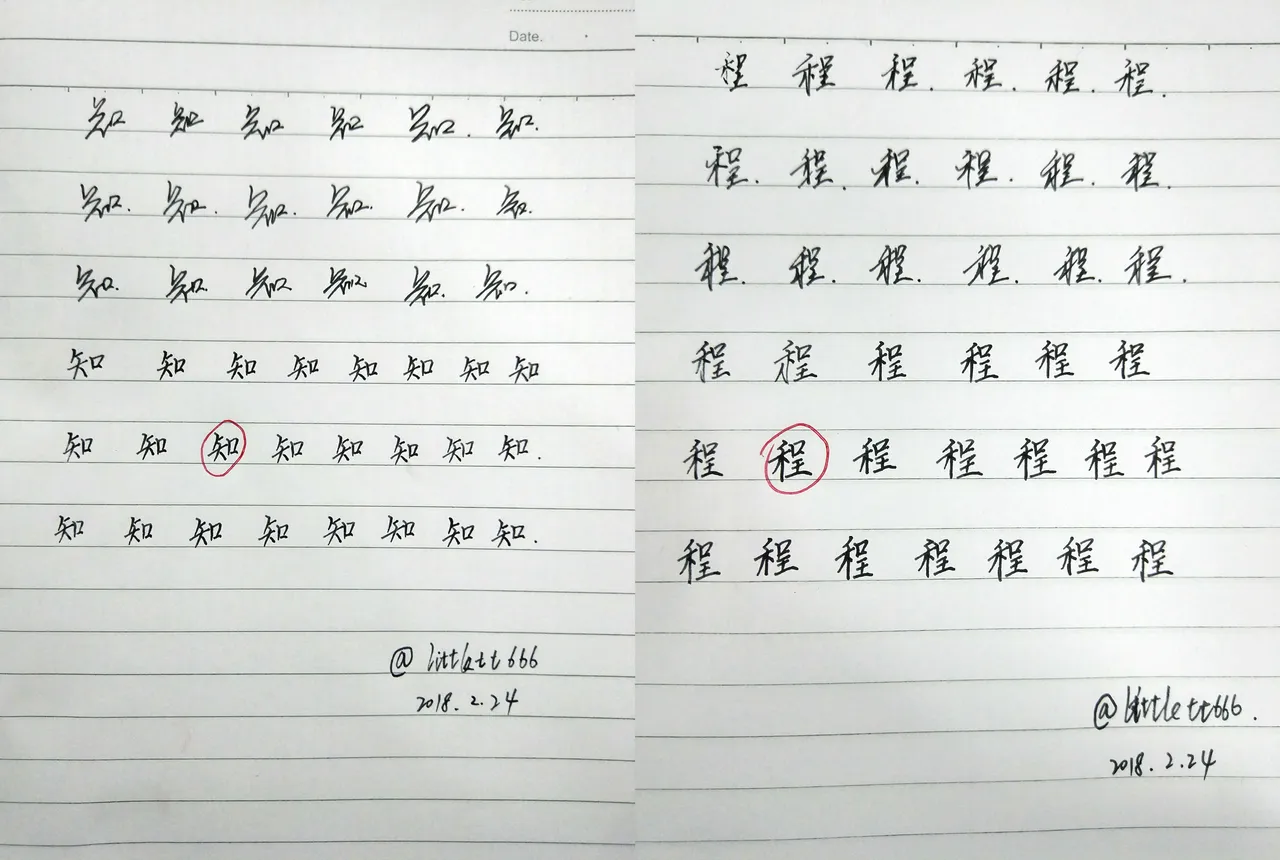 Date.
知 知 知 知 知. 知.
知. 知. 知. 知. 知. 知.
知. 知. 知 知 知. 知.
知 知 知 知 知 知 知 知
知 知 知 知 知 知 知 知.
知 知 知 知 知 知 知 知.
@littlett666
2018.2.24
程 程 程. 程. 程. 程.
程. 程. 程. 程. 程. 程.
程. 程. 程. 程. 程. 程.
程 程 程 程 程 程
程 程 程 程 程 程 程
程 程 程 程 程 程 程
@littlett666.
2018.2.24